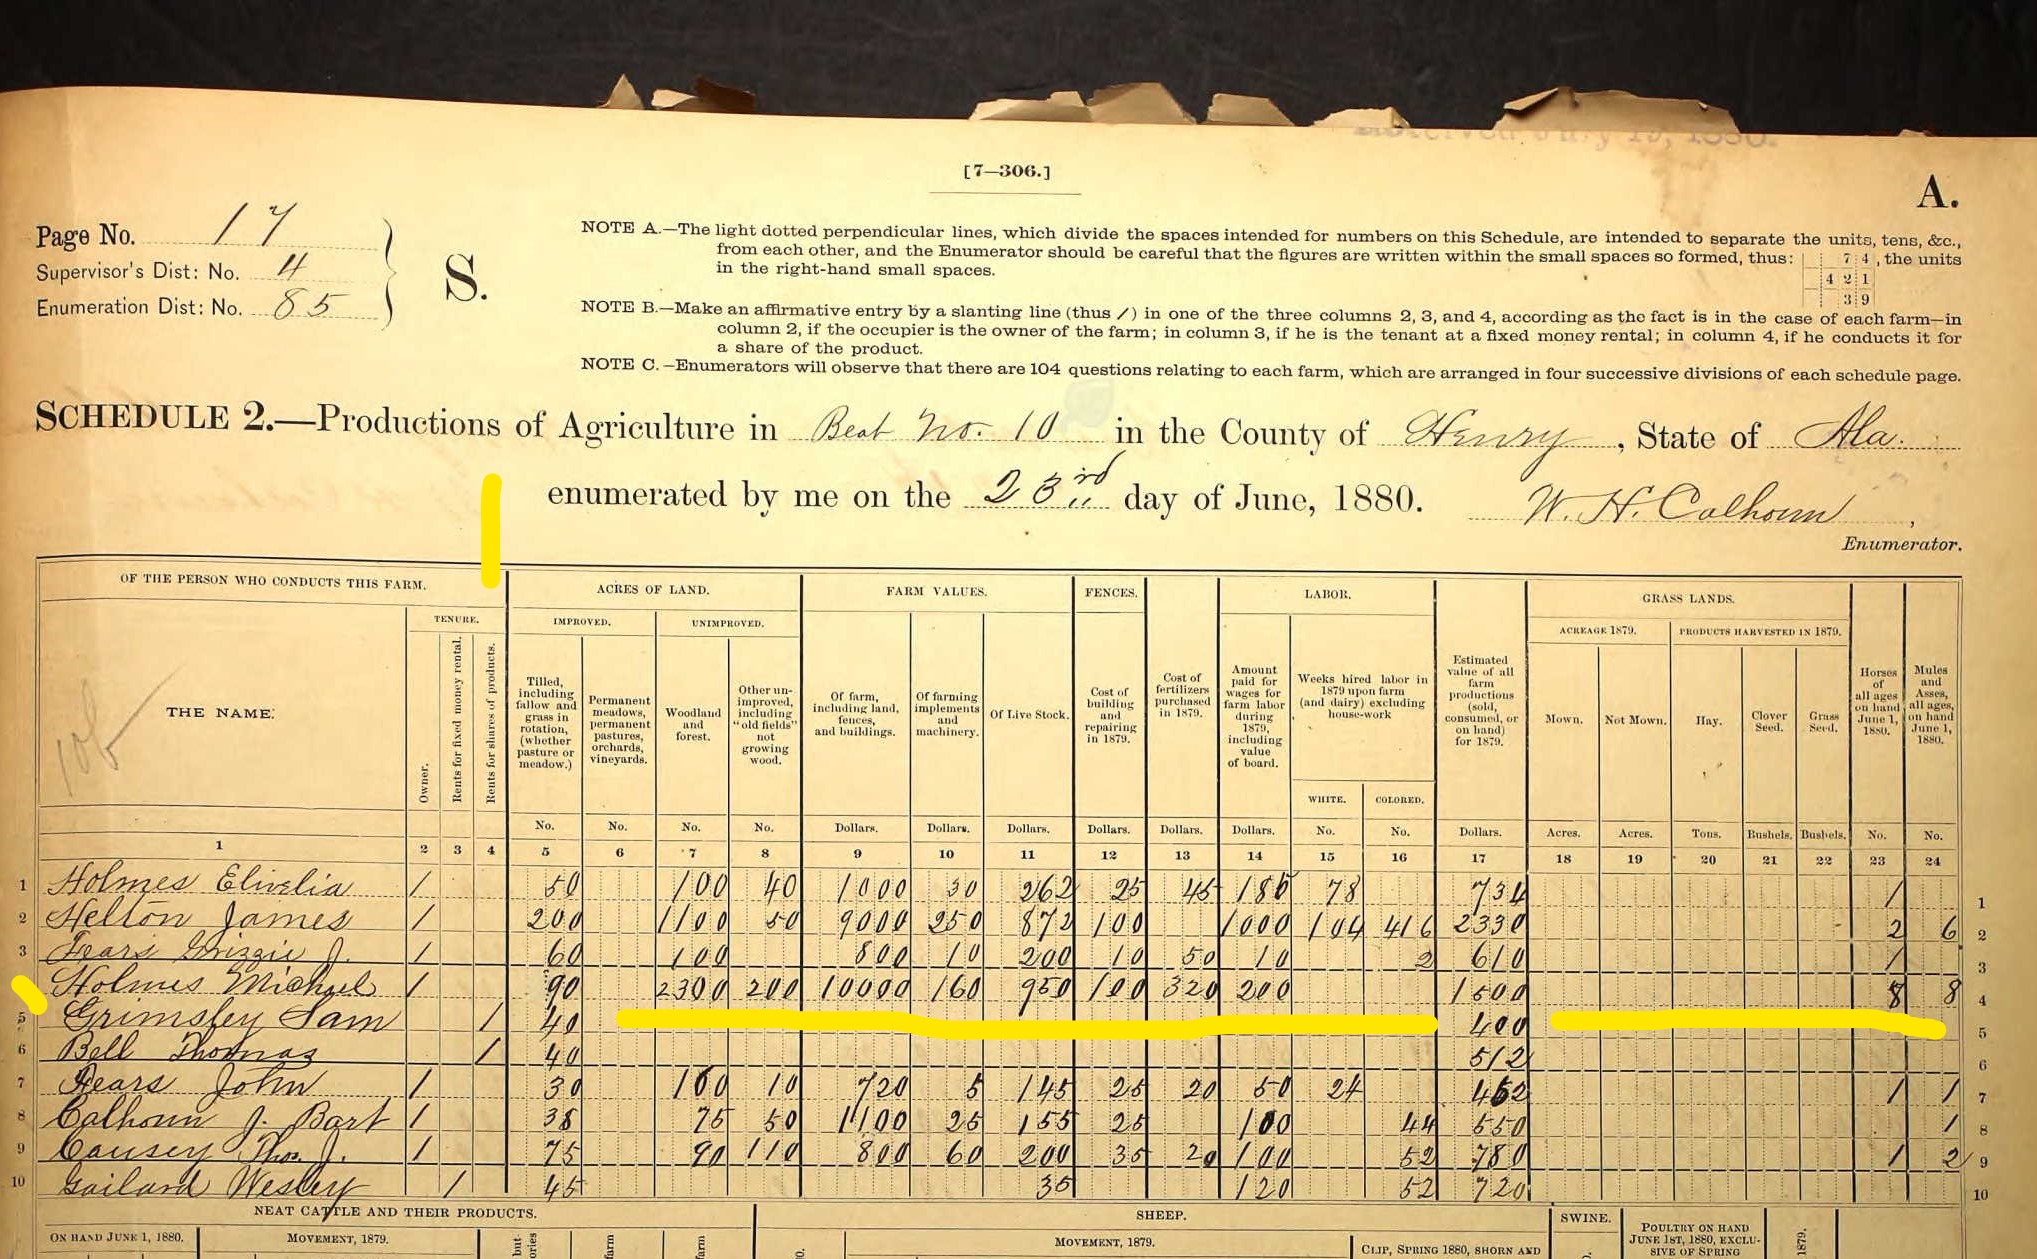 Received July 19, 1880.
[7—306.]
A.
Page No. 17
Supervisor's Dist: No. 4
Enumeration Dist: No. 85
S.
NOTE A.—The light dotted perpendicular lines, which divide the spaces intended for numbers on this Schedule, are intended to separate the units, tens, &c.,
from each other, and the Enumerator should be careful that the figures are written within the small spaces so formed, thus: 74, the units
in the right-hand small spaces. 421
39
NOTE B.—Make an affirmative entry by a slanting line (thus /) in one of the three columns 2, 3, and 4, according as the fact is in the case of each farm—in
column 2, if the occupier is the owner of the farm; in column 3, if he is the tenant at a fixed money rental; in column 4, if he conducts it for
a share of the product.
NOTE C.—Enumerators will observe that there are 104 questions relating to each farm, which are arranged in four successive divisions of each schedule page.
SCHEDULE 2.—Productions of Agriculture in Beat No. 10 in the County of Henry, State of Ala.
enumerated by me on the 23rd day of June, 1880. W. H. Calhoun,
Enumerator.
OF THE PERSON WHO CONDUCTS THIS FARM. ACRES OF LAND. FARM VALUES. FENCES. LABOR. GRASS LANDS.
TENURE. IMPROVED. UNIMPROVED. ACREAGE 1879. PRODUCTS HARVESTED IN 1879.
THE NAME.
Owner.
Rents for fixed money rental.
Rents for shares of products.
Tilled, including fallow and grass in rotation, (whether pasture or meadow.)
Permanent meadows, permanent pastures, orchards, vineyards.
Woodland and forest.
Other unimproved, including "old fields" not growing wood.
Of farm, including land, fences, and buildings.
Of farming implements and machinery.
Of Live Stock.
Cost of building and repairing in 1879.
Cost of fertilizers purchased in 1879.
Amount paid for wages for farm labor during 1879, including value of board.
Weeks hired labor in 1879 upon farm (and dairy) excluding house-work
WHITE. COLORED.
Estimated value of all farm productions (sold, consumed, or on hand) for 1879.
Mown. Not Mown. Hay. Clover Seed. Grass Seed.
Horses of all ages on hand June 1, 1880.
Mules and Asses, all ages, on hand June 1, 1880.
No. No. No. No. Dollars. Dollars. Dollars. Dollars. Dollars. Dollars. No. No. Dollars. Acres. Acres. Tons. Bushels. Bushels. No. No.
1 2 3 4 5 6 7 8 9 10 11 12 13 14 15 16 17 18 19 20 21 22 23 24
1 Holmes / 50 100 40 1000 30 262 25 45 180 78 734 / 1
2 Helton James / 200 1100 50 9000 250 872 100 1000 104 416 2330 2 6 2
3 J. / 60 100 800 10 200 10 50 10 2 610 / 3
4 Holmes Michael / 90 2300 200 10000 160 950 100 320 200 1500 8 8 4
5 Grimsley Sam / 40 400 5
6 Bell Thomas / 40 512 6
7 John / 30 160 10 720 5 145 25 20 50 24 462 1 1 7
8 Calhoun J. Bart / 38 75 50 1100 25 155 25 100 44 550 1 8
9 Causey Thos. J. / 75 90 110 800 60 200 35 20 100 52 780 1 2 9
10 Gailard Wesley / 45 35 120 52 720 10
NEAT CATTLE AND THEIR PRODUCTS. SHEEP. SWINE. POULTRY ON HAND
ON HAND JUNE 1, 1880. MOVEMENT, 1879. MOVEMENT, 1879. CLIP, SPRING 1880, SHORN AND JUNE 1ST, 1880, EXCLU-
SIVE OF SPRING
1879.